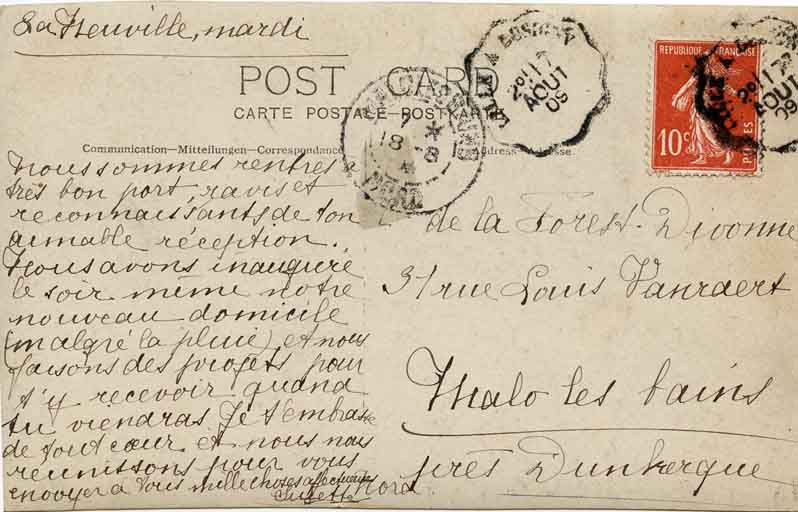 La Neuville, mardi
POST CARD
CARTE POSTALE-POSTKARTE
Communication-Mitteilungen-Correspondance
Address-Adresse.
REPUBLIQUE FRANÇAISE
10c
POSTES
LILLE A BUSIGNY
2º 17
AOUT
09
18 8
Nous sommes rentrés à
très bon port, ravis et
reconnaissants de ton
aimable réception.
Nous avons inauguré
le soir même notre
nouveau domicile
(malgré la pluie) et nous
faisons des projets pour
t'y recevoir quand
tu viendras. Je t'embrasse
de tout cœur et nous nous
réunissons pour vous
envoyer à tous mille choses affectueuses
Suzette
de la Forest-Divonne
31 rue Louis Vanraert
Malo les bains
près Dunkerque
Nord.